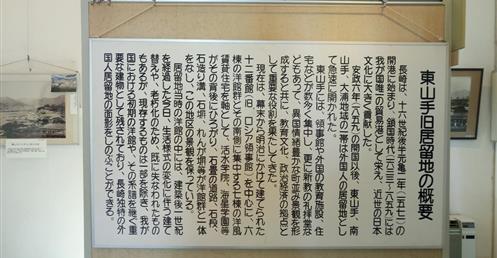 東山手旧居留地の概要
長崎は、十六世紀後半元亀二年(一五七一)の
開港に始まり、鎖国時代(一六三三〜一八五九)には
我が国唯一の貿易港として栄え、近世の日本
文化に大きく貢献した。
安政六年(一八五九)の開国以後、東山手、南
山手、大浦地域の一帯は外国人の居留地とし
て急速に開かれた。
東山手には、領事館や外国の教育施設、住
宅などが数多く集中し、更に新教の礼拝堂な
どもあって、異国情緒豊かな町並み景観を形
成すると共に、教育文化、政治経済の拠点と
して重要な役割を果たしてきた。
現在は、幕末から明治にかけて建てられた
十二番館(旧ロシア領事館)を中心に、六
棟の洋館群とその南側に集中する七棟の洋風
賃貸住宅を軸として、活水学院、海星学園等
がその背後にひろがり、石畳の道路、石段、
石造り溝、石塀、れんが塀等が洋館群と一体
をなし、この地区の景観を保っている。
居留地当時の洋館の中には、建築後一世紀
を経過した今日、生活様式の変化に伴う建て
替えや、老朽化のため、既に失なわれたもの
もあるが、現存するものは一部を除き、我が
国における初期の洋館で、その系譜を継ぐ重
要な建物として残されており、長崎独特の外
国人居留地の面影をしのぶことができる。